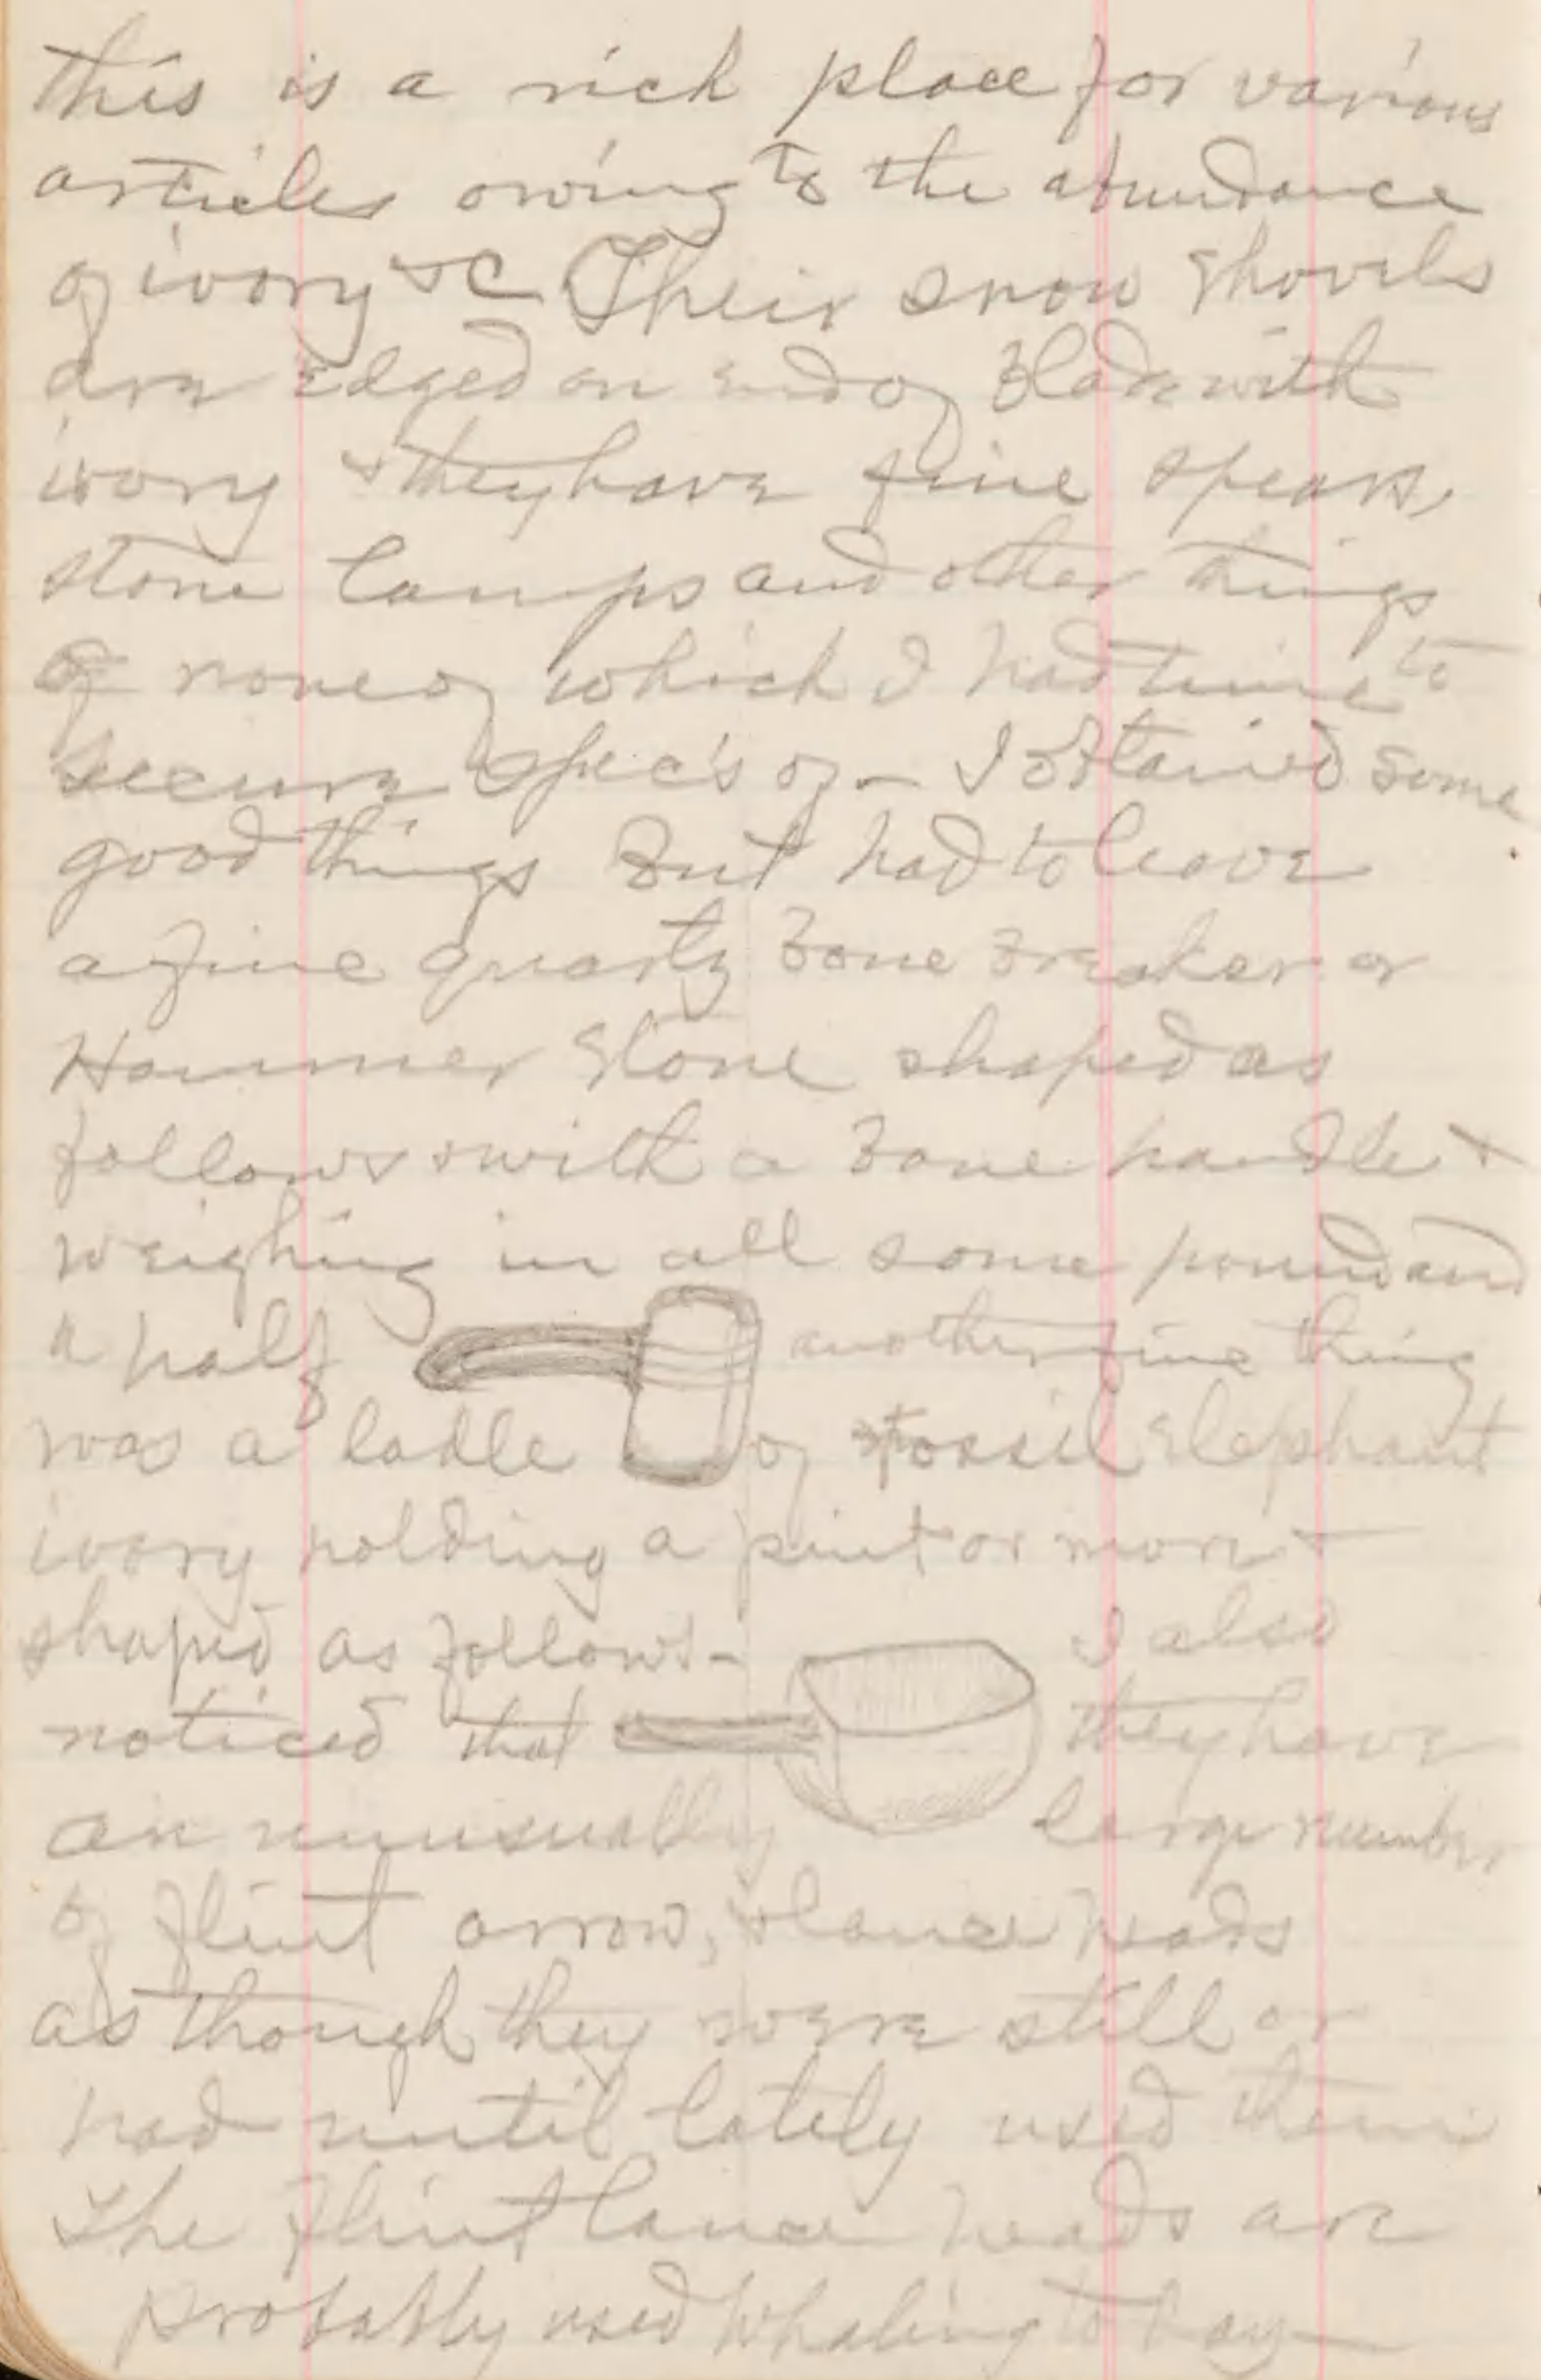 this is a rich place for various
articles owing to the abundance
of ivory &c Their snow shovels
are edged on end of blade with
ivory & they have fine spears,
stone lamps and other things
of none of which I had time to
secure spec's of — I obtained some
good things but had to leave
a fine quartz bone breaker or
Hammer stone shaped as
follows & with a bone handle &
weighing in all some pound and
a half another fine thing
was a ladle of fossil elephant
ivory holding a pint or more &
shaped as follows - I also
noticed that they have
an unusually large number
of flint arrow, & lance heads
as though they were still or
had until lately used them
The flint lance heads are
probably used whaling to day —